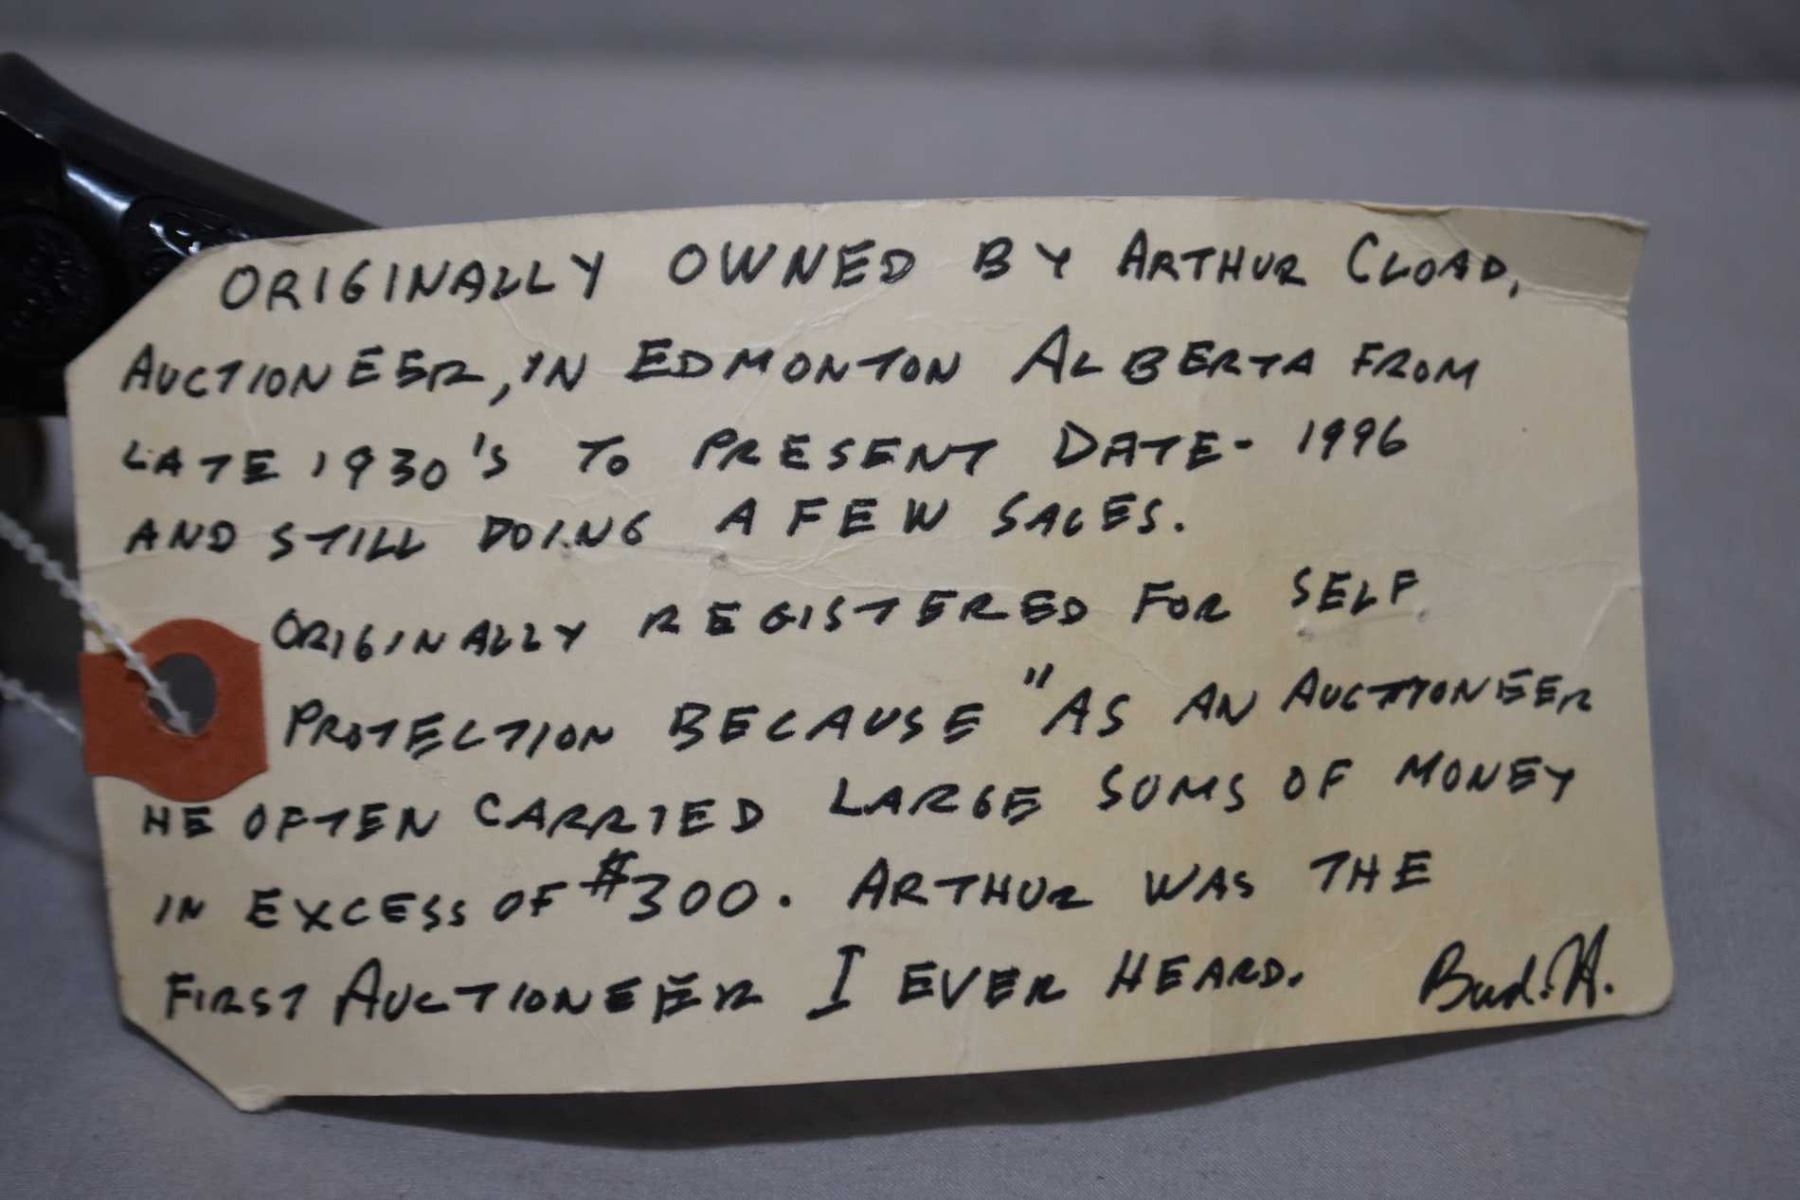 ORIGINALLY OWNED BY ARTHUR CLOAD,
AUCTIONEER, IN EDMONTON ALBERTA FROM
LATE 1930'S TO PRESENT DATE - 1996
AND STILL DOING A FEW SALES.
ORIGINALLY REGISTERED FOR SELF
PROTECTION BECAUSE "AS AN AUCTIONEER
HE OFTEN CARRIED LARGE SUMS OF MONEY
IN EXCESS OF $300. ARTHUR WAS THE
FIRST AUCTIONEER I EVER HEARD. Bud. H.